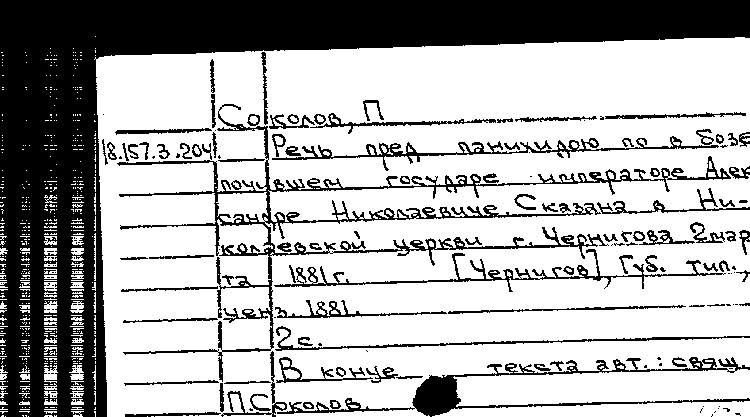 Соколов, П
18.157.3.204.
Речь пред панихидою по в бозе
почившем государе императоре Алек
сандре Николаевиче. Сказана в Ни-
колаевской церкви г. Чернигова 2 мар
та 1881 г. [Чернигов], Губ. тип.,
ценз. 1881.
2 с.
В конце текста авт.: свящ.
П. Соколов.